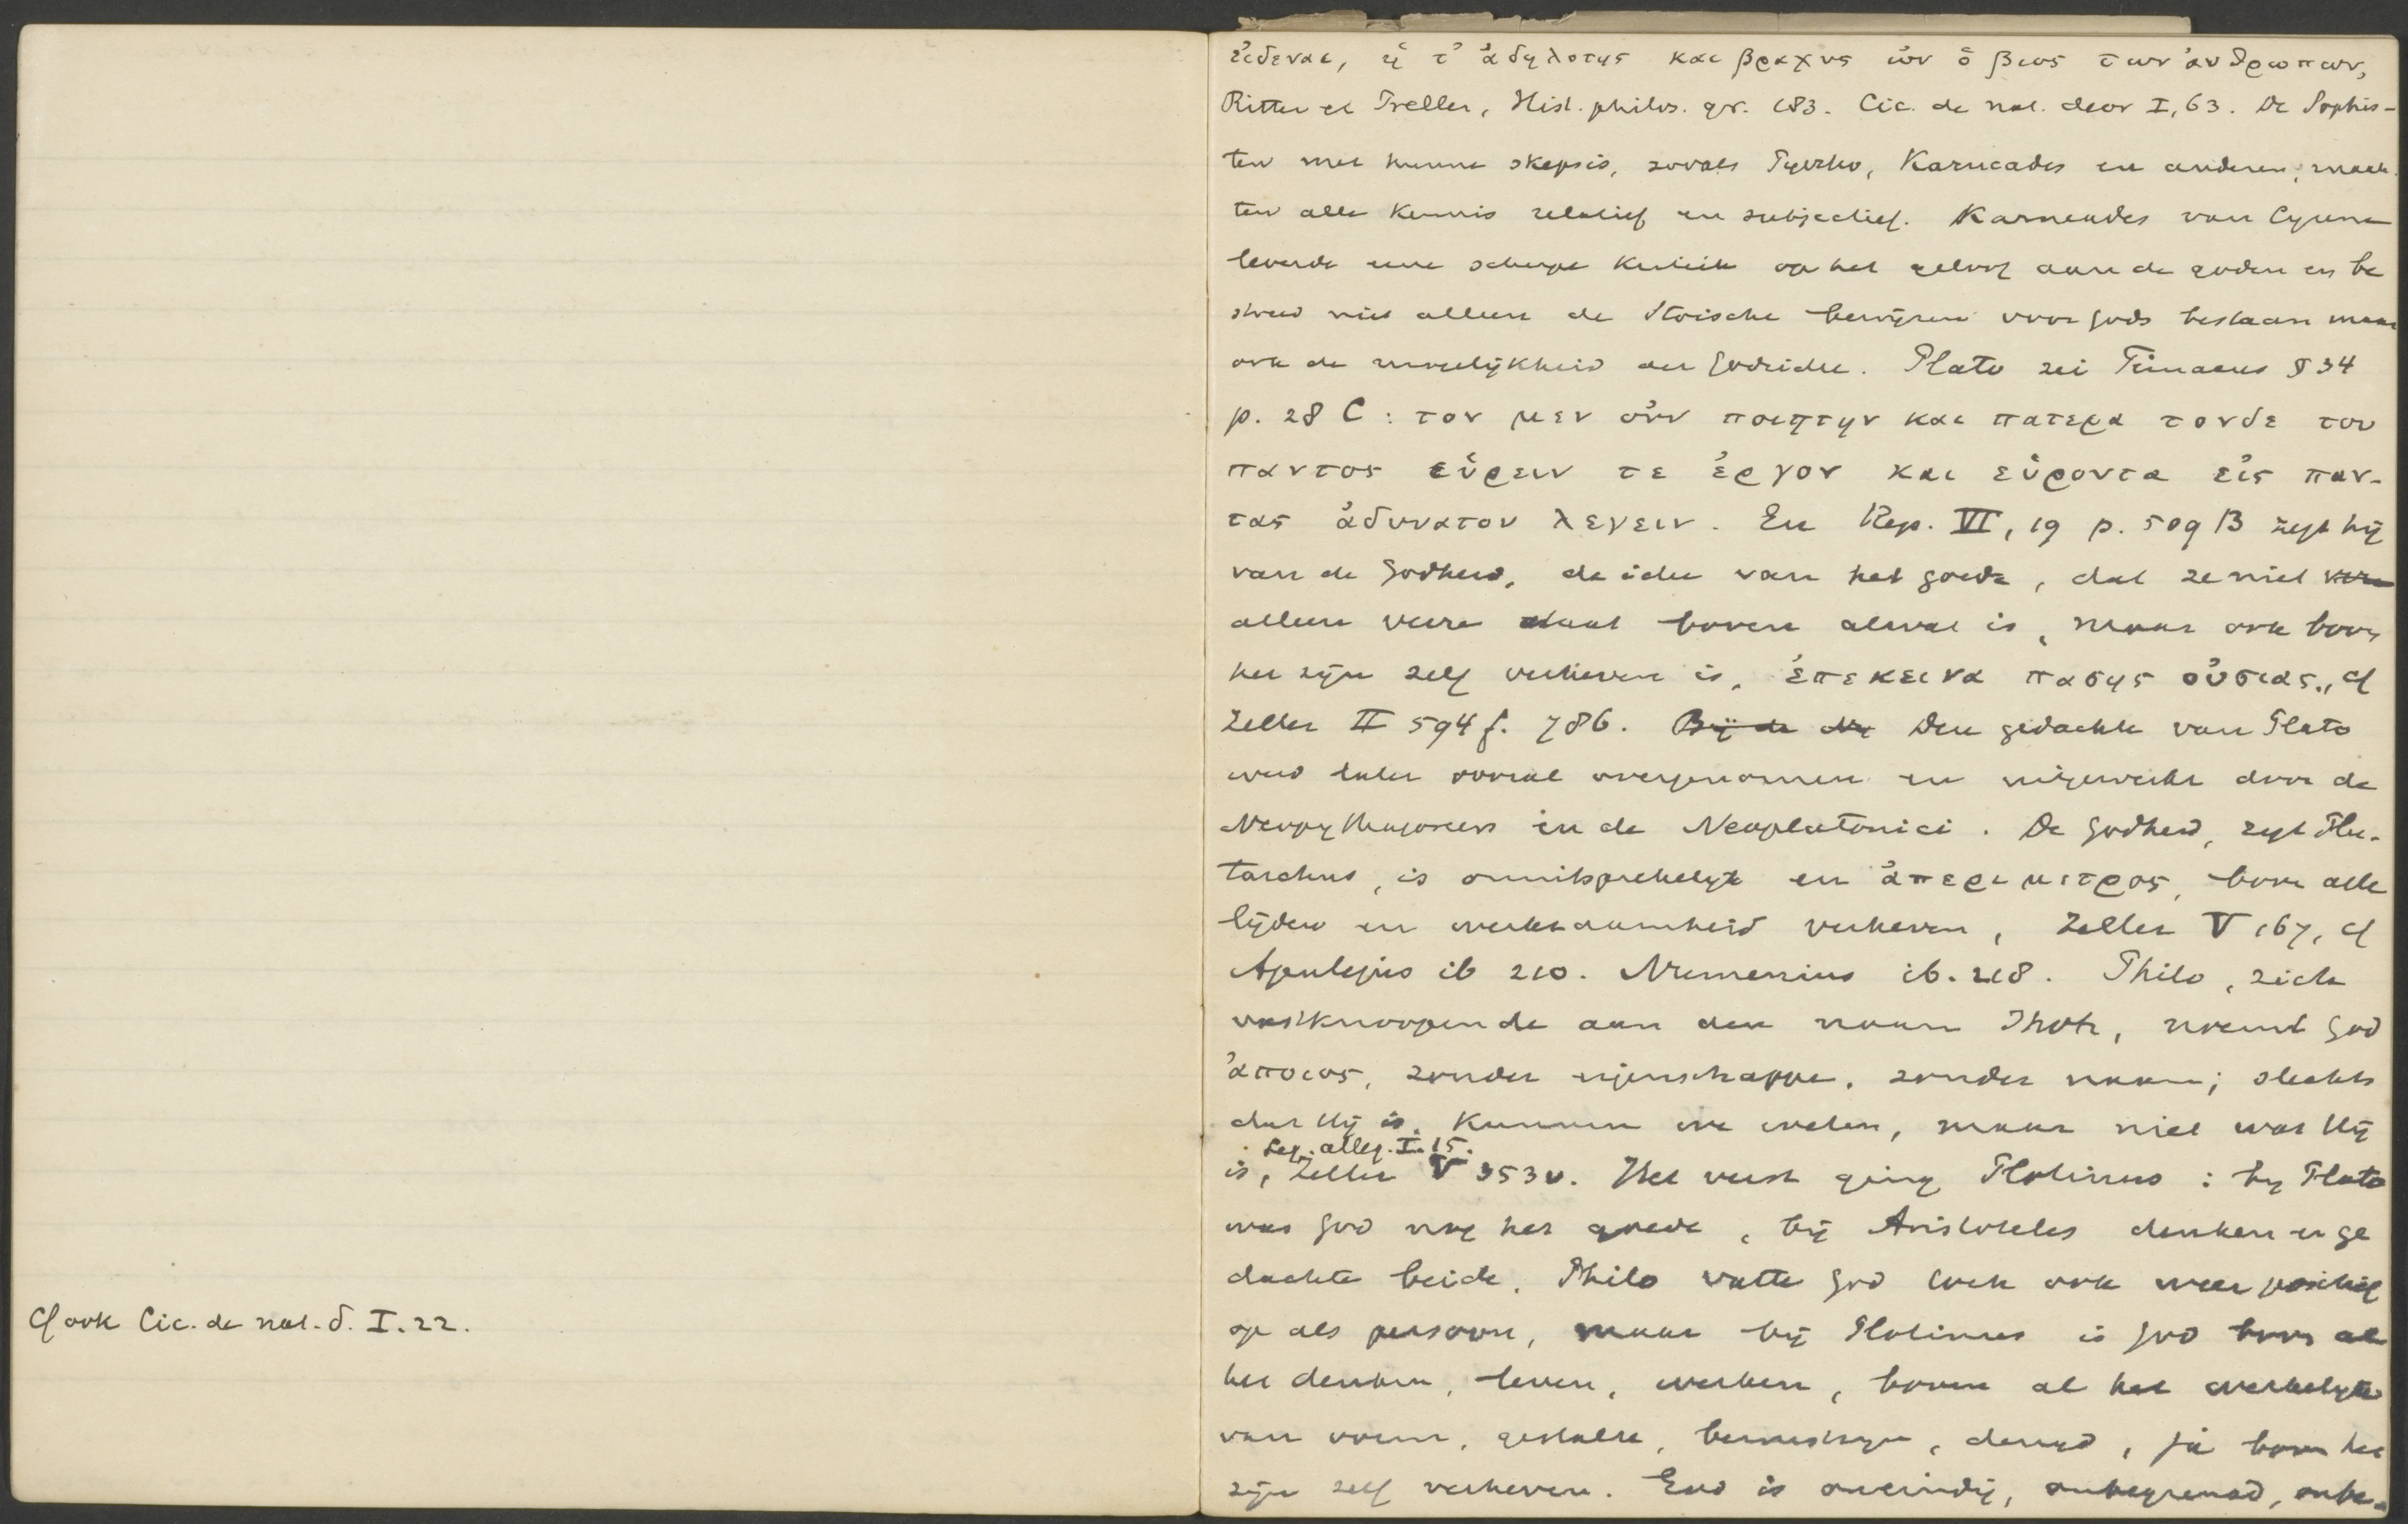 Cf ook Cic. de nat. d. I. 22.
εἰδεναι, ἡ τ' ἀδηλοτης και βραχυς ὠν ὁ βιος των ἀνθρωπων,
Ritter et Preller, Hist. philos. gr. 183. Cic. de nat. deor I, 63. De Sophis-
ten met hunne skepsis, zooals Pyrrho, Karneades en anderen, maak-
ten alle kennis relatief en subjectief. Karneades van Cyrene
leverde eene scherpe kritiek op het geloof aan de goden en be
streed niet alleen de Stoische bewijzen voor Gods bestaan maar
ook de mogelijkheid der Godsidee. Plato zei Timaeus § 34
p. 28 C : τον μεν οὐν ποιητην και πατερα τονδε του
παντος εὑρειν τε ἐργον και εὑροντα εἰς παν-
τας ἀδυνατον λεγειν. En Rep. VI, 19 p. 509 B zegt hij
van de Godheid, de idee van het goede, dat ze niet
alleen verre staat boven alwat is, maar ook boven
het zijn zelf verheven is, ἐπεκεινα πασης οὐσιας., cf
Zeller II 594 f. 786. Bij de Deze gedachte van Plato
werd later vooral overgenomen en uitgewerkt door de
Neopythagoreers en de Neoplatonici. De Godheid, zegt Plu-
tarchus, is onuitsprekelijk en ἀπεριμετρος, boven alle
lijden en werkzaamheid verheven, Zeller V 167, cf
Apulejus ib 210. Numenius ib. 218. Philo, zich
vastknoopende aan den naam Jhvh, noemt God
ἀποιος, zonder eigenschappen, zonder naam; slechts
dat Hij is, kunnen we weten, maar niet wat Hij
Leg. alleg. I. 15.
is, Zeller V 353 v. Het verst ging Plotinus : bij Plato
was God nog het goede, bij Aristoteles denken en ge
dachte beide. Philo vatte God toch ook weer positief
op als persoon, maar bij Plotinus is God boven al
het denken, leven, werken, boven al het werkelijke
van vorm, gestalte, bewustzijn, deugd, ja boven het
zijn zelf verheven. God is oneindig, onbegrensd, onbe-